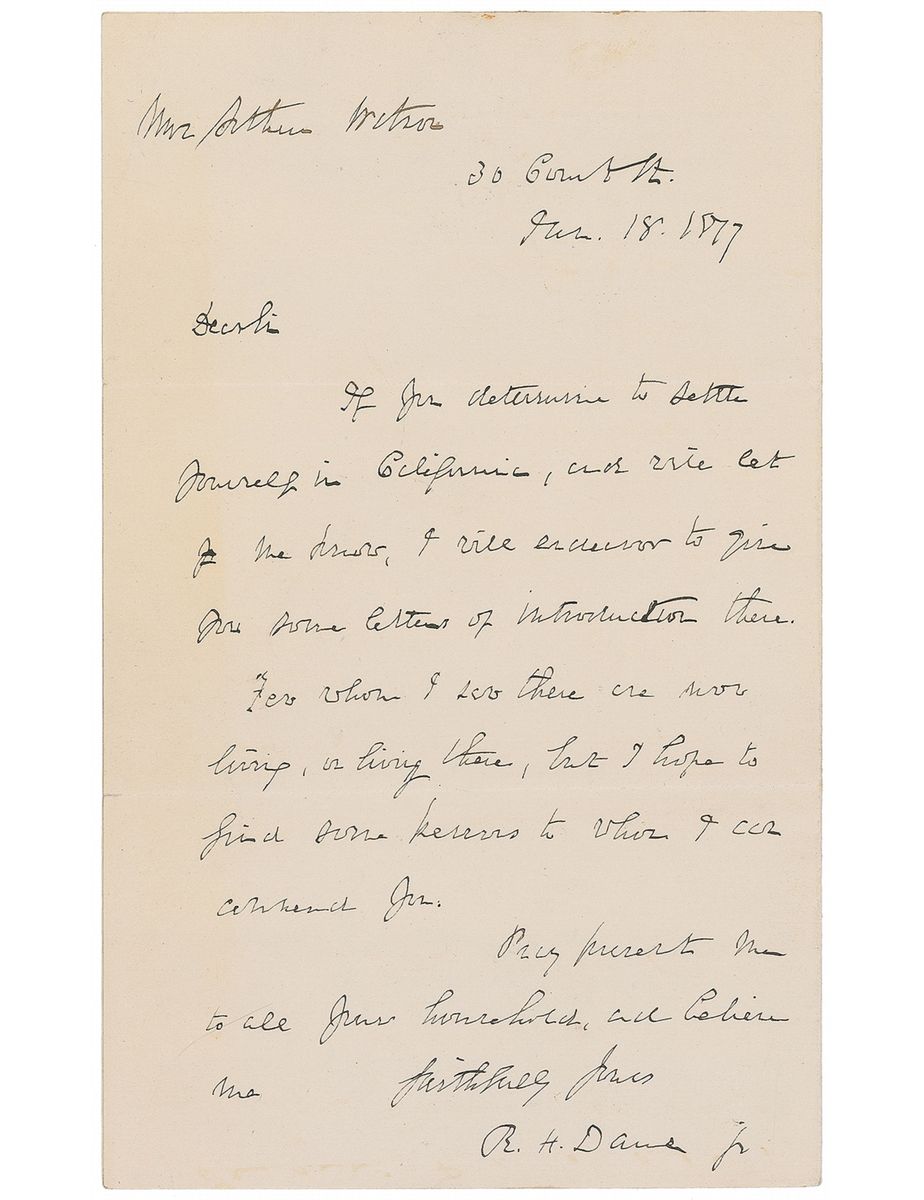 Arthur Watson
30 Court St.
Jan. 18. 1877
Dear Sir
If you determine to settle
yourself in California, and will let
me know, I will endeavor to give
you some letters of introduction there.
Few whom I saw there are now
living, or living there, but I hope to
find some persons to whom I can
commend you.
Pray present me
to all your household, and believe
me faithfully yours
R. H. Dana Jr